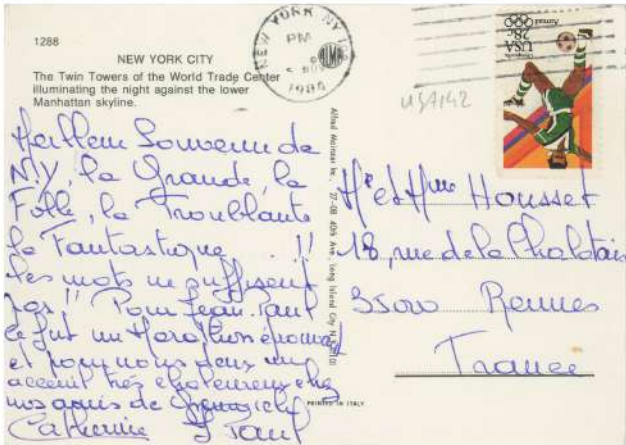 1288
NEW YORK CITY
The Twin Towers of the World Trade Center
illuminating the night against the lower
Manhattan skyline.
Meilleur Souvenir de
N.Y, la Grande, la
Folle, la Troublante
la Fantastique !!
Les mots ne suffisent
pas !! Pour Jean Paul
ce fut un Marathon
et pour nous deux un
accueil très chaleureux chez
nos amis de
Catherine J Paul
Alfred Mainzer Inc., 27-08 40th Ave., Long Island City N.Y.
PRINTED IN ITALY
NEW YORK NY
PM
1984
USA 28c
Airmail
USA142
Mr et Mme Housset
18, rue de la Chalotais
35000 Rennes
France